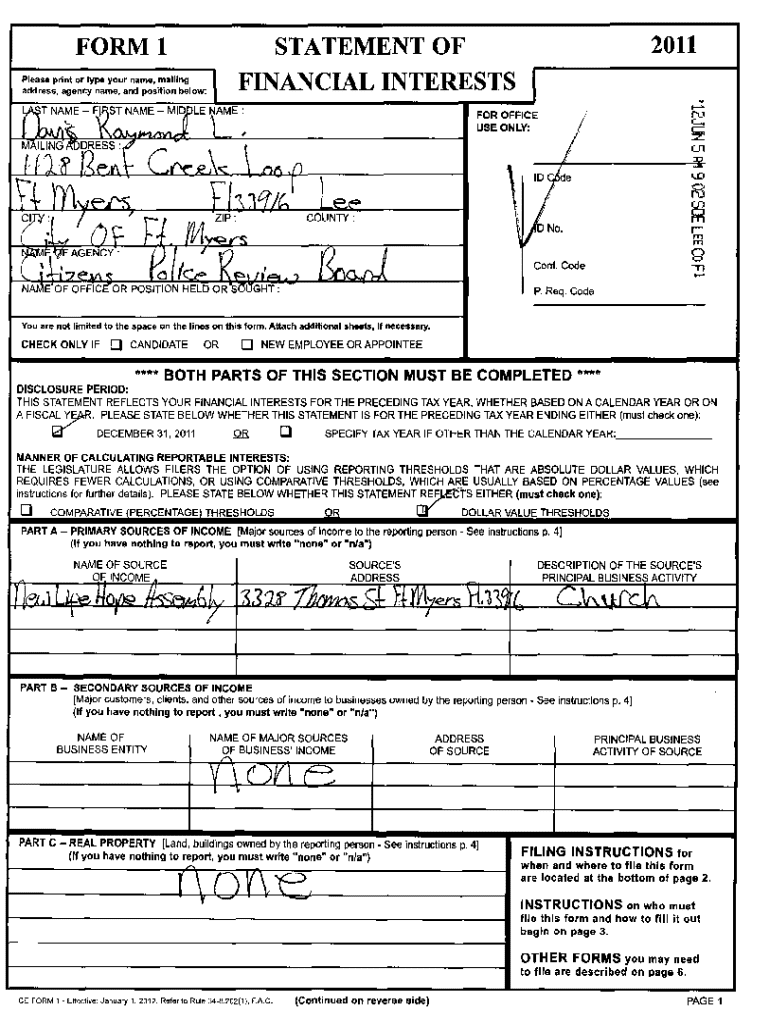 FORM 1 STATEMENT OF 2011
Please print or type your name, mailing
address, agency name, and position below:
FINANCIAL INTERESTS
LAST NAME – FIRST NAME – MIDDLE NAME :
Davis Raymond L.
MAILING ADDRESS :
1128 Bent Creek Loop
Ft Myers, Fl 33916 Lee
CITY : ZIP : COUNTY :
City OF Ft. Myers
NAME OF AGENCY :
Citizens Police Review Board
NAME OF OFFICE OR POSITION HELD OR SOUGHT :
You are not limited to the space on the lines on this form. Attach additional sheets, if necessary.
CHECK ONLY IF ☐ CANDIDATE OR ☐ NEW EMPLOYEE OR APPOINTEE
FOR OFFICE
USE ONLY:
ID Code
ID No.
Conf. Code
P. Req. Code
'12JUN 5 AM 9:02 SOE LEE CO.Fl
**** BOTH PARTS OF THIS SECTION MUST BE COMPLETED ****
DISCLOSURE PERIOD:
THIS STATEMENT REFLECTS YOUR FINANCIAL INTERESTS FOR THE PRECEDING TAX YEAR, WHETHER BASED ON A CALENDAR YEAR OR ON
A FISCAL YEAR. PLEASE STATE BELOW WHETHER THIS STATEMENT IS FOR THE PRECEDING TAX YEAR ENDING EITHER (must check one):
☑ DECEMBER 31, 2011 OR ☐ SPECIFY TAX YEAR IF OTHER THAN THE CALENDAR YEAR:
MANNER OF CALCULATING REPORTABLE INTERESTS:
THE LEGISLATURE ALLOWS FILERS THE OPTION OF USING REPORTING THRESHOLDS THAT ARE ABSOLUTE DOLLAR VALUES, WHICH
REQUIRES FEWER CALCULATIONS, OR USING COMPARATIVE THRESHOLDS, WHICH ARE USUALLY BASED ON PERCENTAGE VALUES (see
instructions for further details). PLEASE STATE BELOW WHETHER THIS STATEMENT REFLECTS EITHER (must check one):
☐ COMPARATIVE (PERCENTAGE) THRESHOLDS OR ☑ DOLLAR VALUE THRESHOLDS
PART A – PRIMARY SOURCES OF INCOME [Major sources of income to the reporting person - See instructions p. 4]
(If you have nothing to report, you must write "none" or "n/a")
NAME OF SOURCE SOURCE'S DESCRIPTION OF THE SOURCE'S
OF INCOME ADDRESS PRINCIPAL BUSINESS ACTIVITY
New Life Hope Assembly 3328 Thomas St Ft Myers Fl.33916 Church
PART B – SECONDARY SOURCES OF INCOME
[Major customers, clients, and other sources of income to businesses owned by the reporting person - See instructions p. 4]
(If you have nothing to report , you must write "none" or "n/a")
NAME OF NAME OF MAJOR SOURCES ADDRESS PRINCIPAL BUSINESS
BUSINESS ENTITY OF BUSINESS' INCOME OF SOURCE ACTIVITY OF SOURCE
none
PART C – REAL PROPERTY [Land, buildings owned by the reporting person - See instructions p. 4]
(If you have nothing to report, you must write "none" or "n/a")
none
FILING INSTRUCTIONS for
when and where to file this form
are located at the bottom of page 2.
INSTRUCTIONS on who must
file this form and how to fill it out
begin on page 3.
OTHER FORMS you may need
to file are described on page 6.
CE FORM 1 - Effective: January 1, 2012. Refer to Rule 34-8.202(1), F.A.C. (Continued on reverse side) PAGE 1